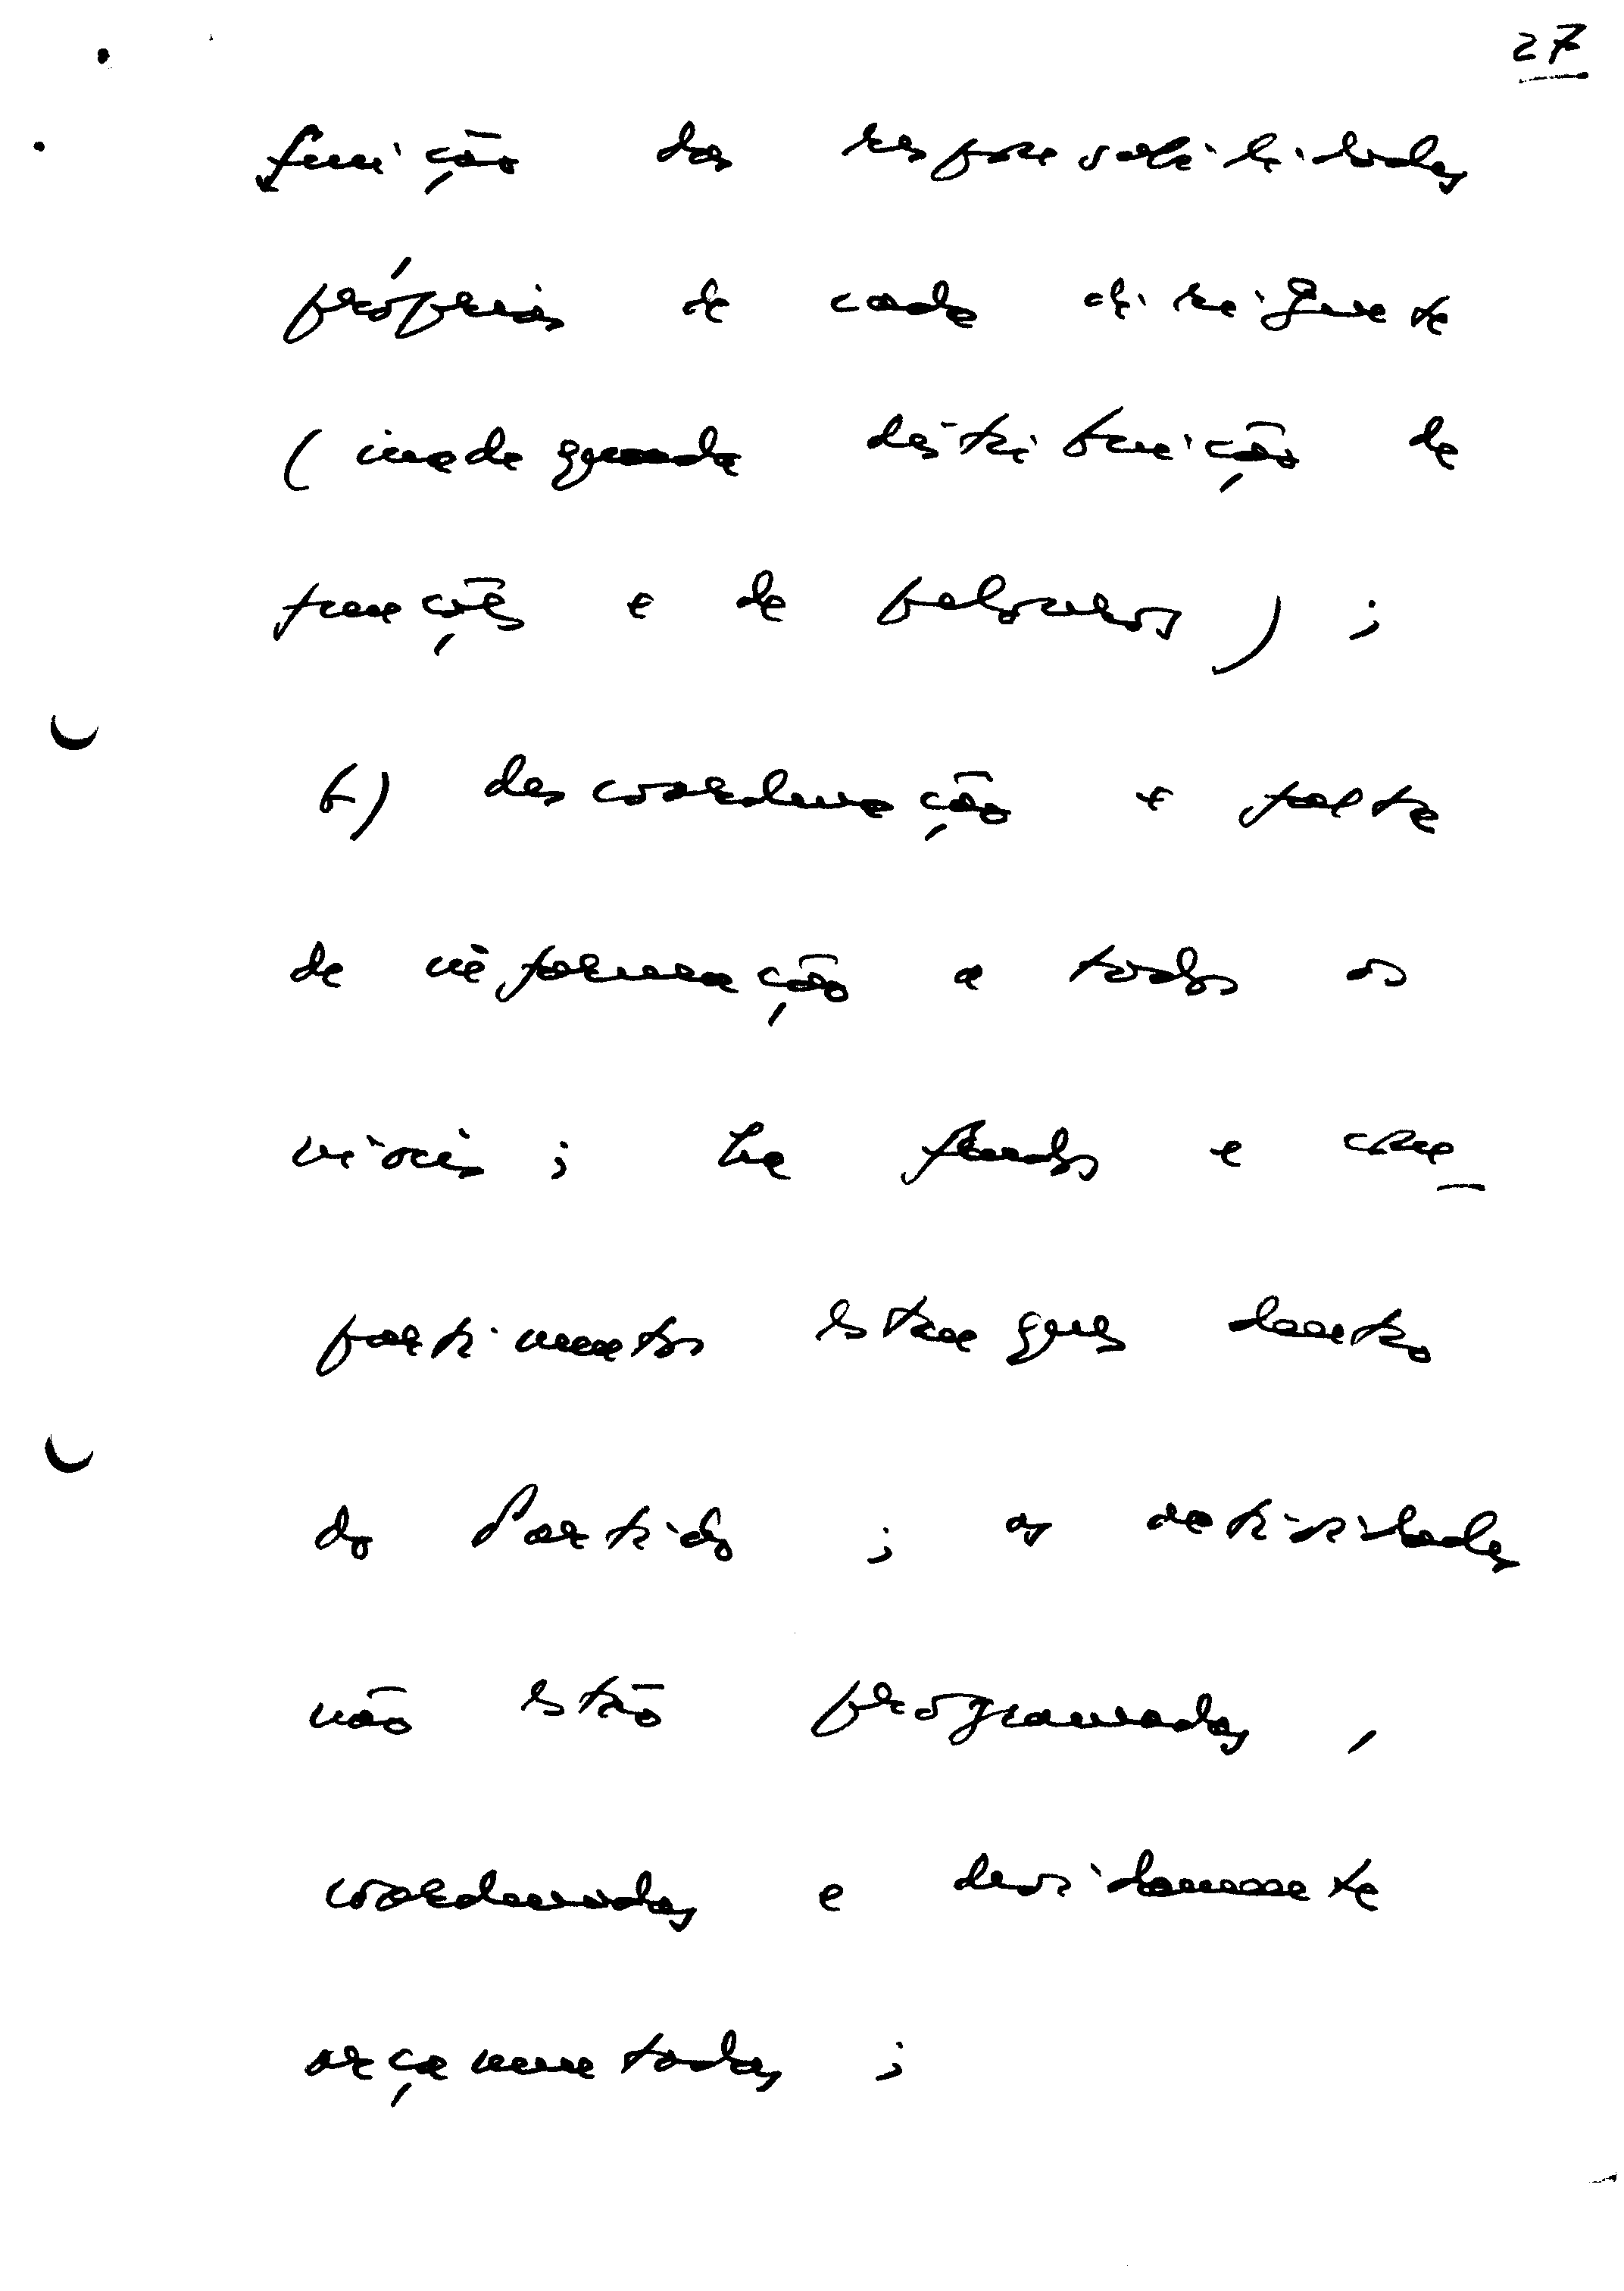 27
finição das responsabilidades
próprias de cada dirigente
(inadequada distribuição de
funções e de pelouros) ;
b) descoordenação e falta
de informação a todos os
níveis ; há feudos e com_
partimentos estanques dentro
do Partido ; as actividades
não estão programadas ,
coordenadas e devidamente
orçamentadas ;